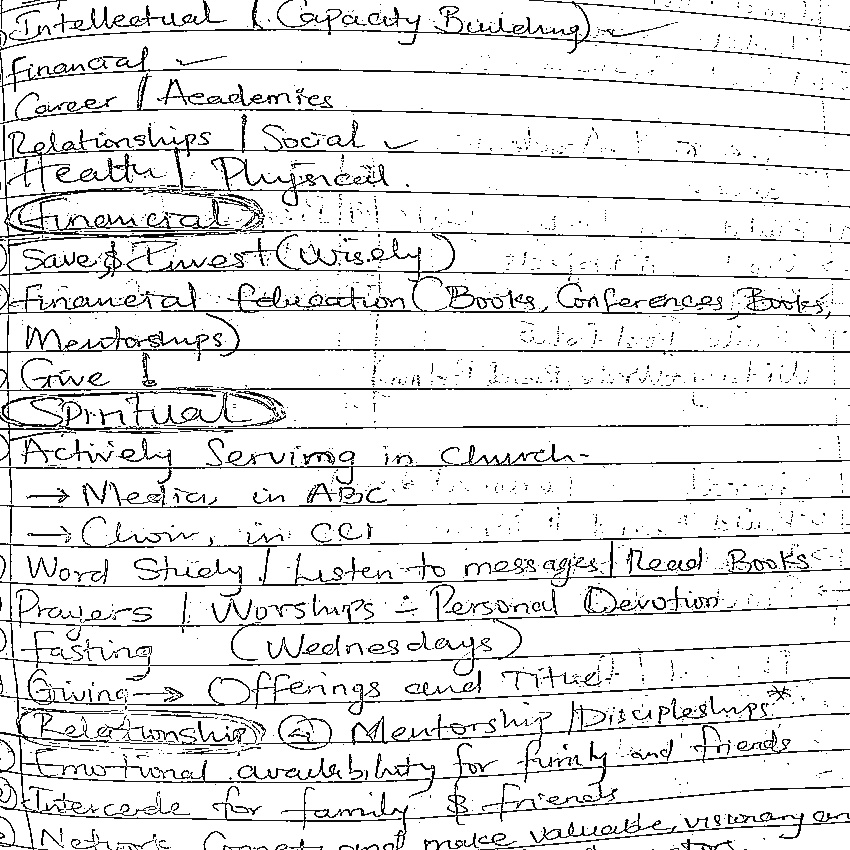 Intellectual / (Capacity Building)
Financial
Career / Academics
Relationships / Social
Health / Physical.
Financial
Save & Invest (Wisely)
Financial Education (Books, Conferences, Books,
Mentorships)
Give !
Spiritual
Actively Serving in Church-
→ Media, in ABC
→ Choir, in CCI
Word Study / Listen to messages / Read Books
Prayers / Worships - Personal Devotion
Fasting (Wednesdays)
Giving → Offerings and
Relationship ④ Mentorship / Discipleships*
Emotional availability for family and friends
Intercede for family & friends
Network, Connect and make valuable, visionary an